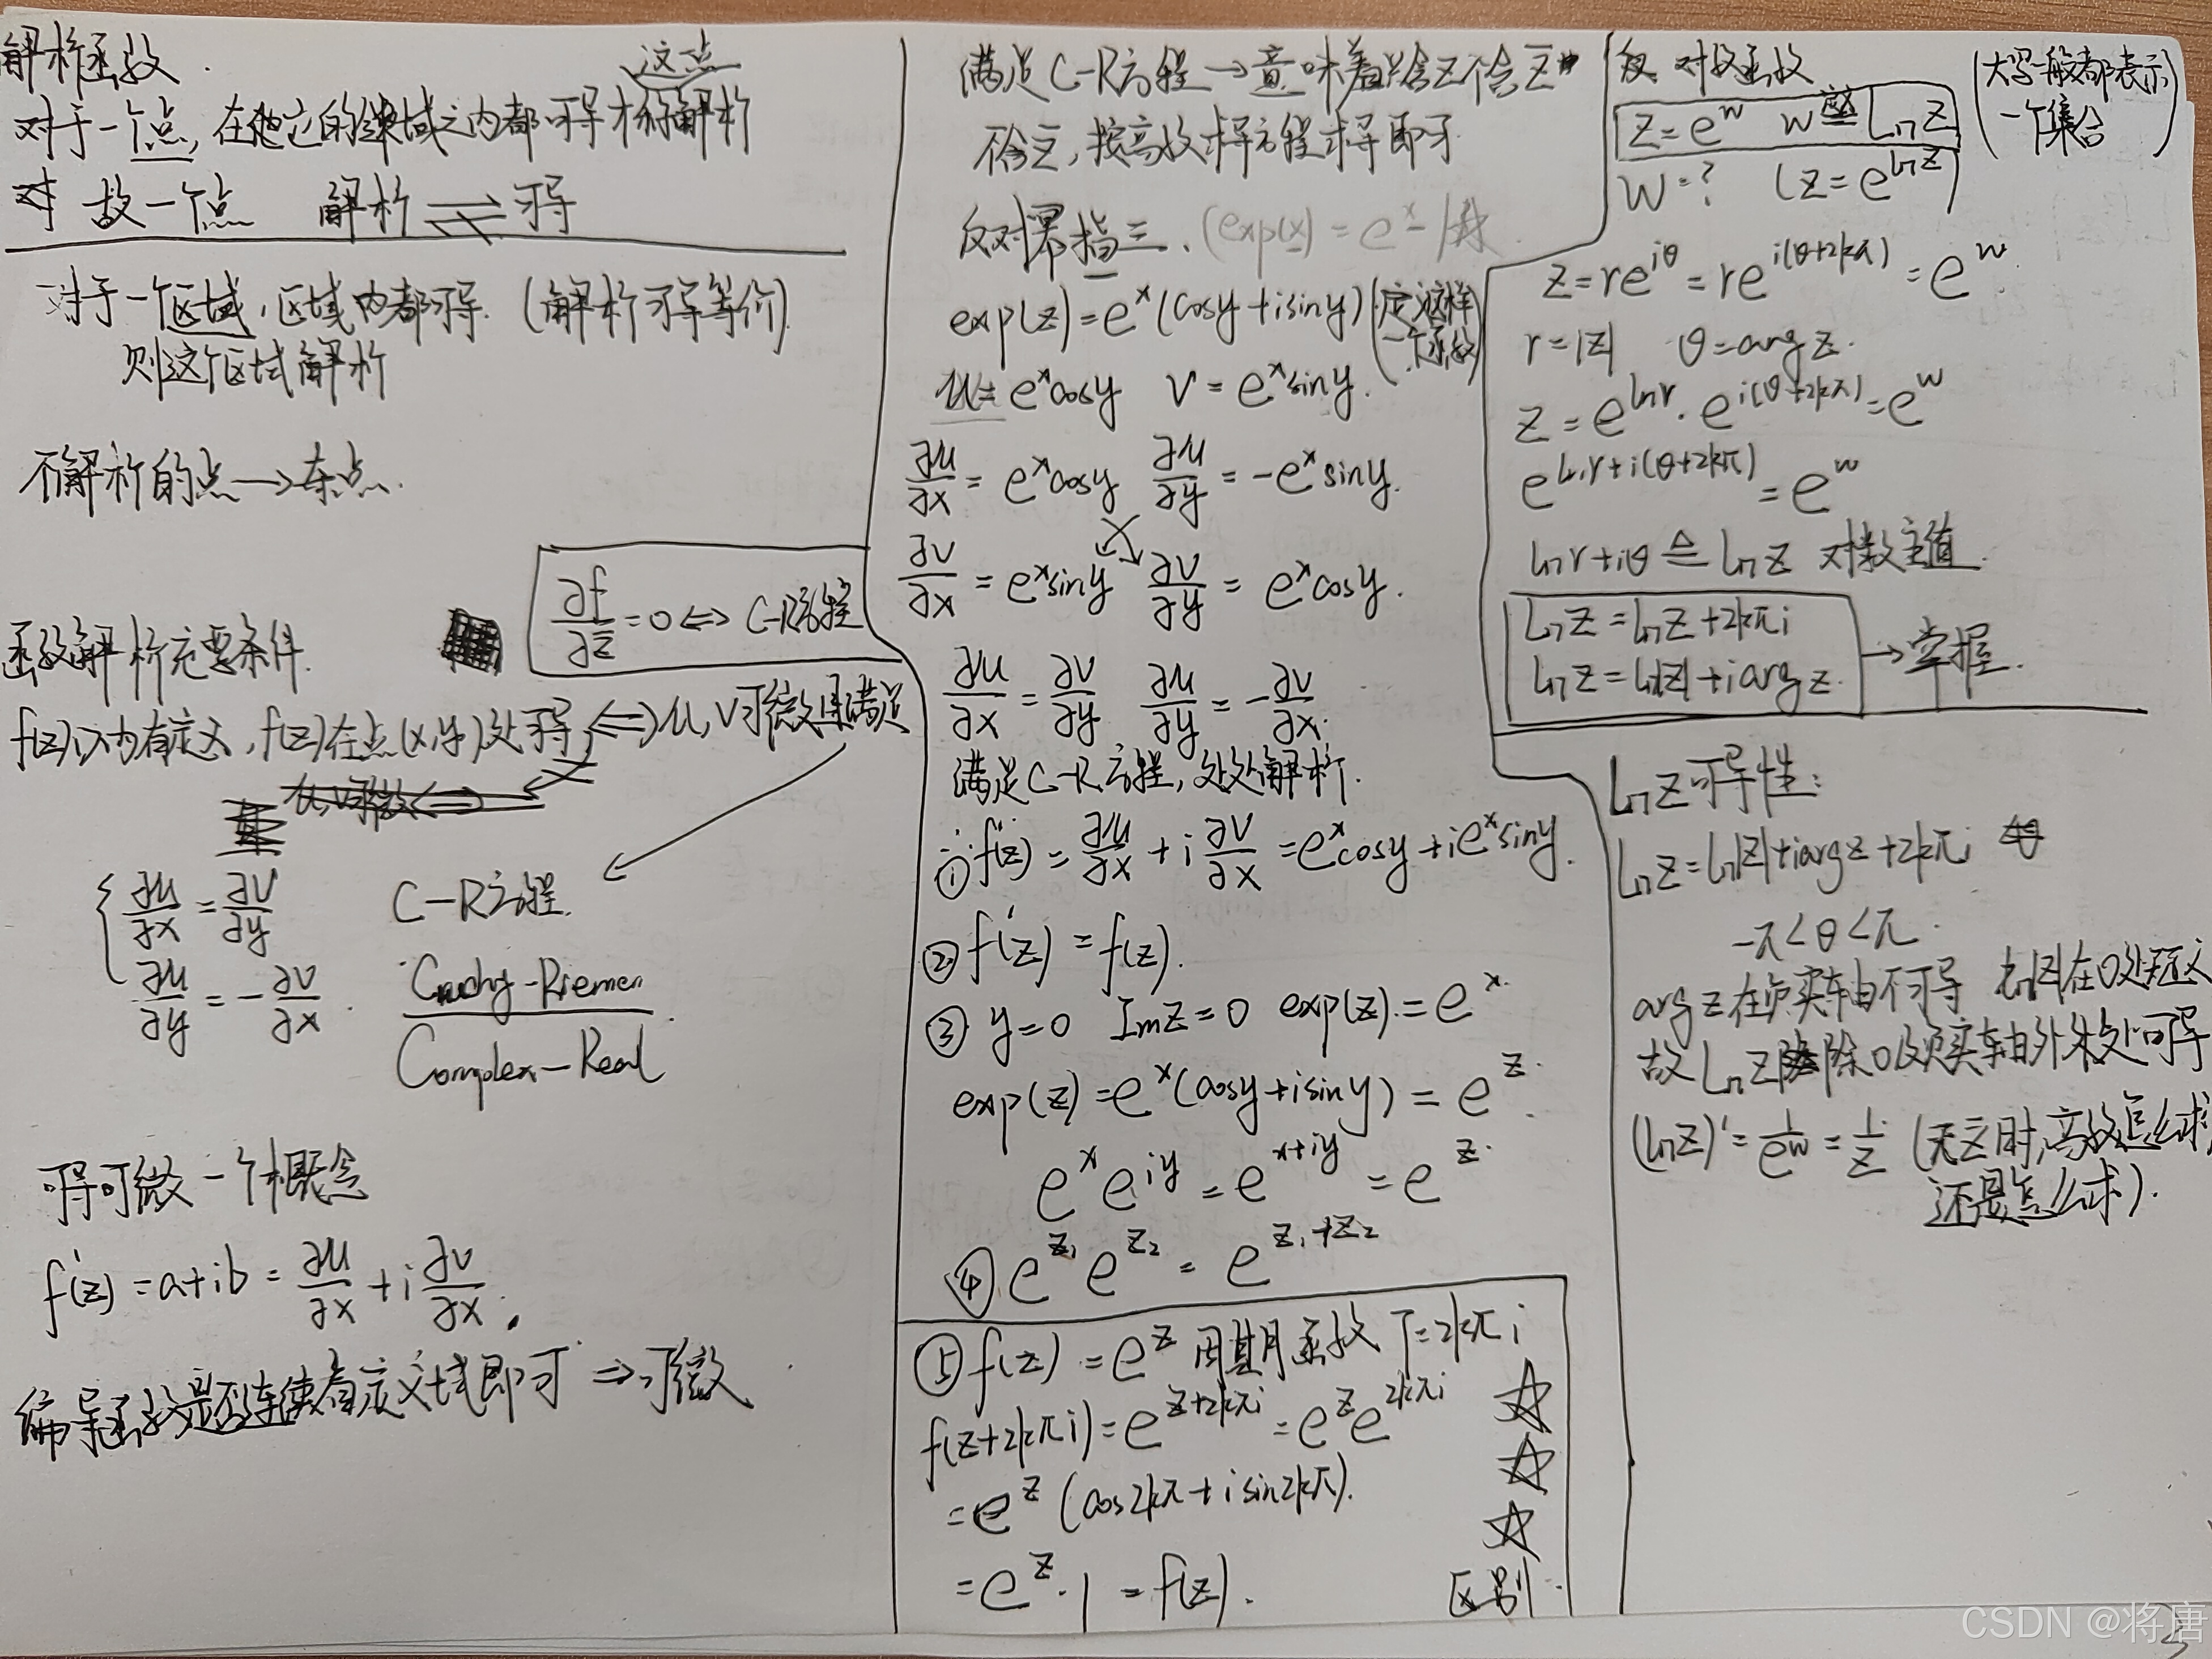 解析函数.
对于一个点,在它的邻域之内都可导才称这点解析
故一个点 解析 ⇌ 可导
对于一个区域,区域内都可导.(解析可导等价)
则这个区域解析
不解析的点→奇点.
∂f/∂z̄ = 0 ⇔ C-R方程
函数解析充要条件.
f(z)以内有定义,f(z)在点(x,y)处可导 ⇔ u,v可微且满足
∂u/∂x = ∂v/∂y
∂u/∂y = -∂v/∂x.
C-R方程.
Cauchy-Riemen
Complex-Real
可导可微一个概念
f'(z) = a+ib = ∂u/∂x + i ∂v/∂x.
偏导函数是否连续看定义域即可 ⇒可微
满足C-R方程→意味着只含z不含z̄
不含z̄,按高数求导方程求导即可
反对幂指三.(exp(x) = e^x
exp(z)=e^x(cosy+isiny)(定这样一个函数)
u=e^x cosy v=e^x siny.
∂u/∂x = e^x cosy ∂u/∂y = -e^x siny.
∂v/∂x = e^x siny ∂v/∂y = e^x cosy.
∂u/∂x = ∂v/∂y ∂u/∂y = -∂v/∂x.
满足C-R方程,处处解析.
① f'(z) = ∂u/∂x + i ∂v/∂x = e^x cosy + i e^x siny.
② f'(z) = f(z).
③ y=0 Imz=0 exp(z)=e^x.
exp(z)=e^x(cosy+isiny) = e^z.
e^x e^{iy} = e^{x+iy} = e^z.
④ e^{z₁} e^{z₂} = e^{z₁+z₂}
⑤ f(z) = e^z 周期函数 T=2kπi
f(z+2kπi) = e^{z+2kπi} = e^z e^{2kπi} ☆
= e^z (cos2kπ+isin2kπ). ☆
☆
= e^z·1 = f(z). 区别.
对数函数
(大写一般都表示一个集合)
z=e^w w Ln z
w=? (z=e^{ln z})
z=re^{iθ} = re^{i(θ+2kπ)} = e^w.
r=|z| θ=arg z.
z=e^{lnr}·e^{i(θ+2kπ)}=e^w
e^{lnr+i(θ+2kπ)} = e^w
lnr+iθ ≜ ln z 对数主值.
Ln z = ln z+2kπi
ln z = ln|z|+i arg z.
→掌握.
Ln z可导性:
Ln z = ln|z|+i arg z+2kπi
-π<θ<π.
arg z在负实轴不可导 ln|z|在0处无定义
故Ln z除0及负实轴外处处可导
(ln z)' = 1/e^w = 1/z (无z̄时,高数怎么求
还是怎么求).
CSDN @将唐